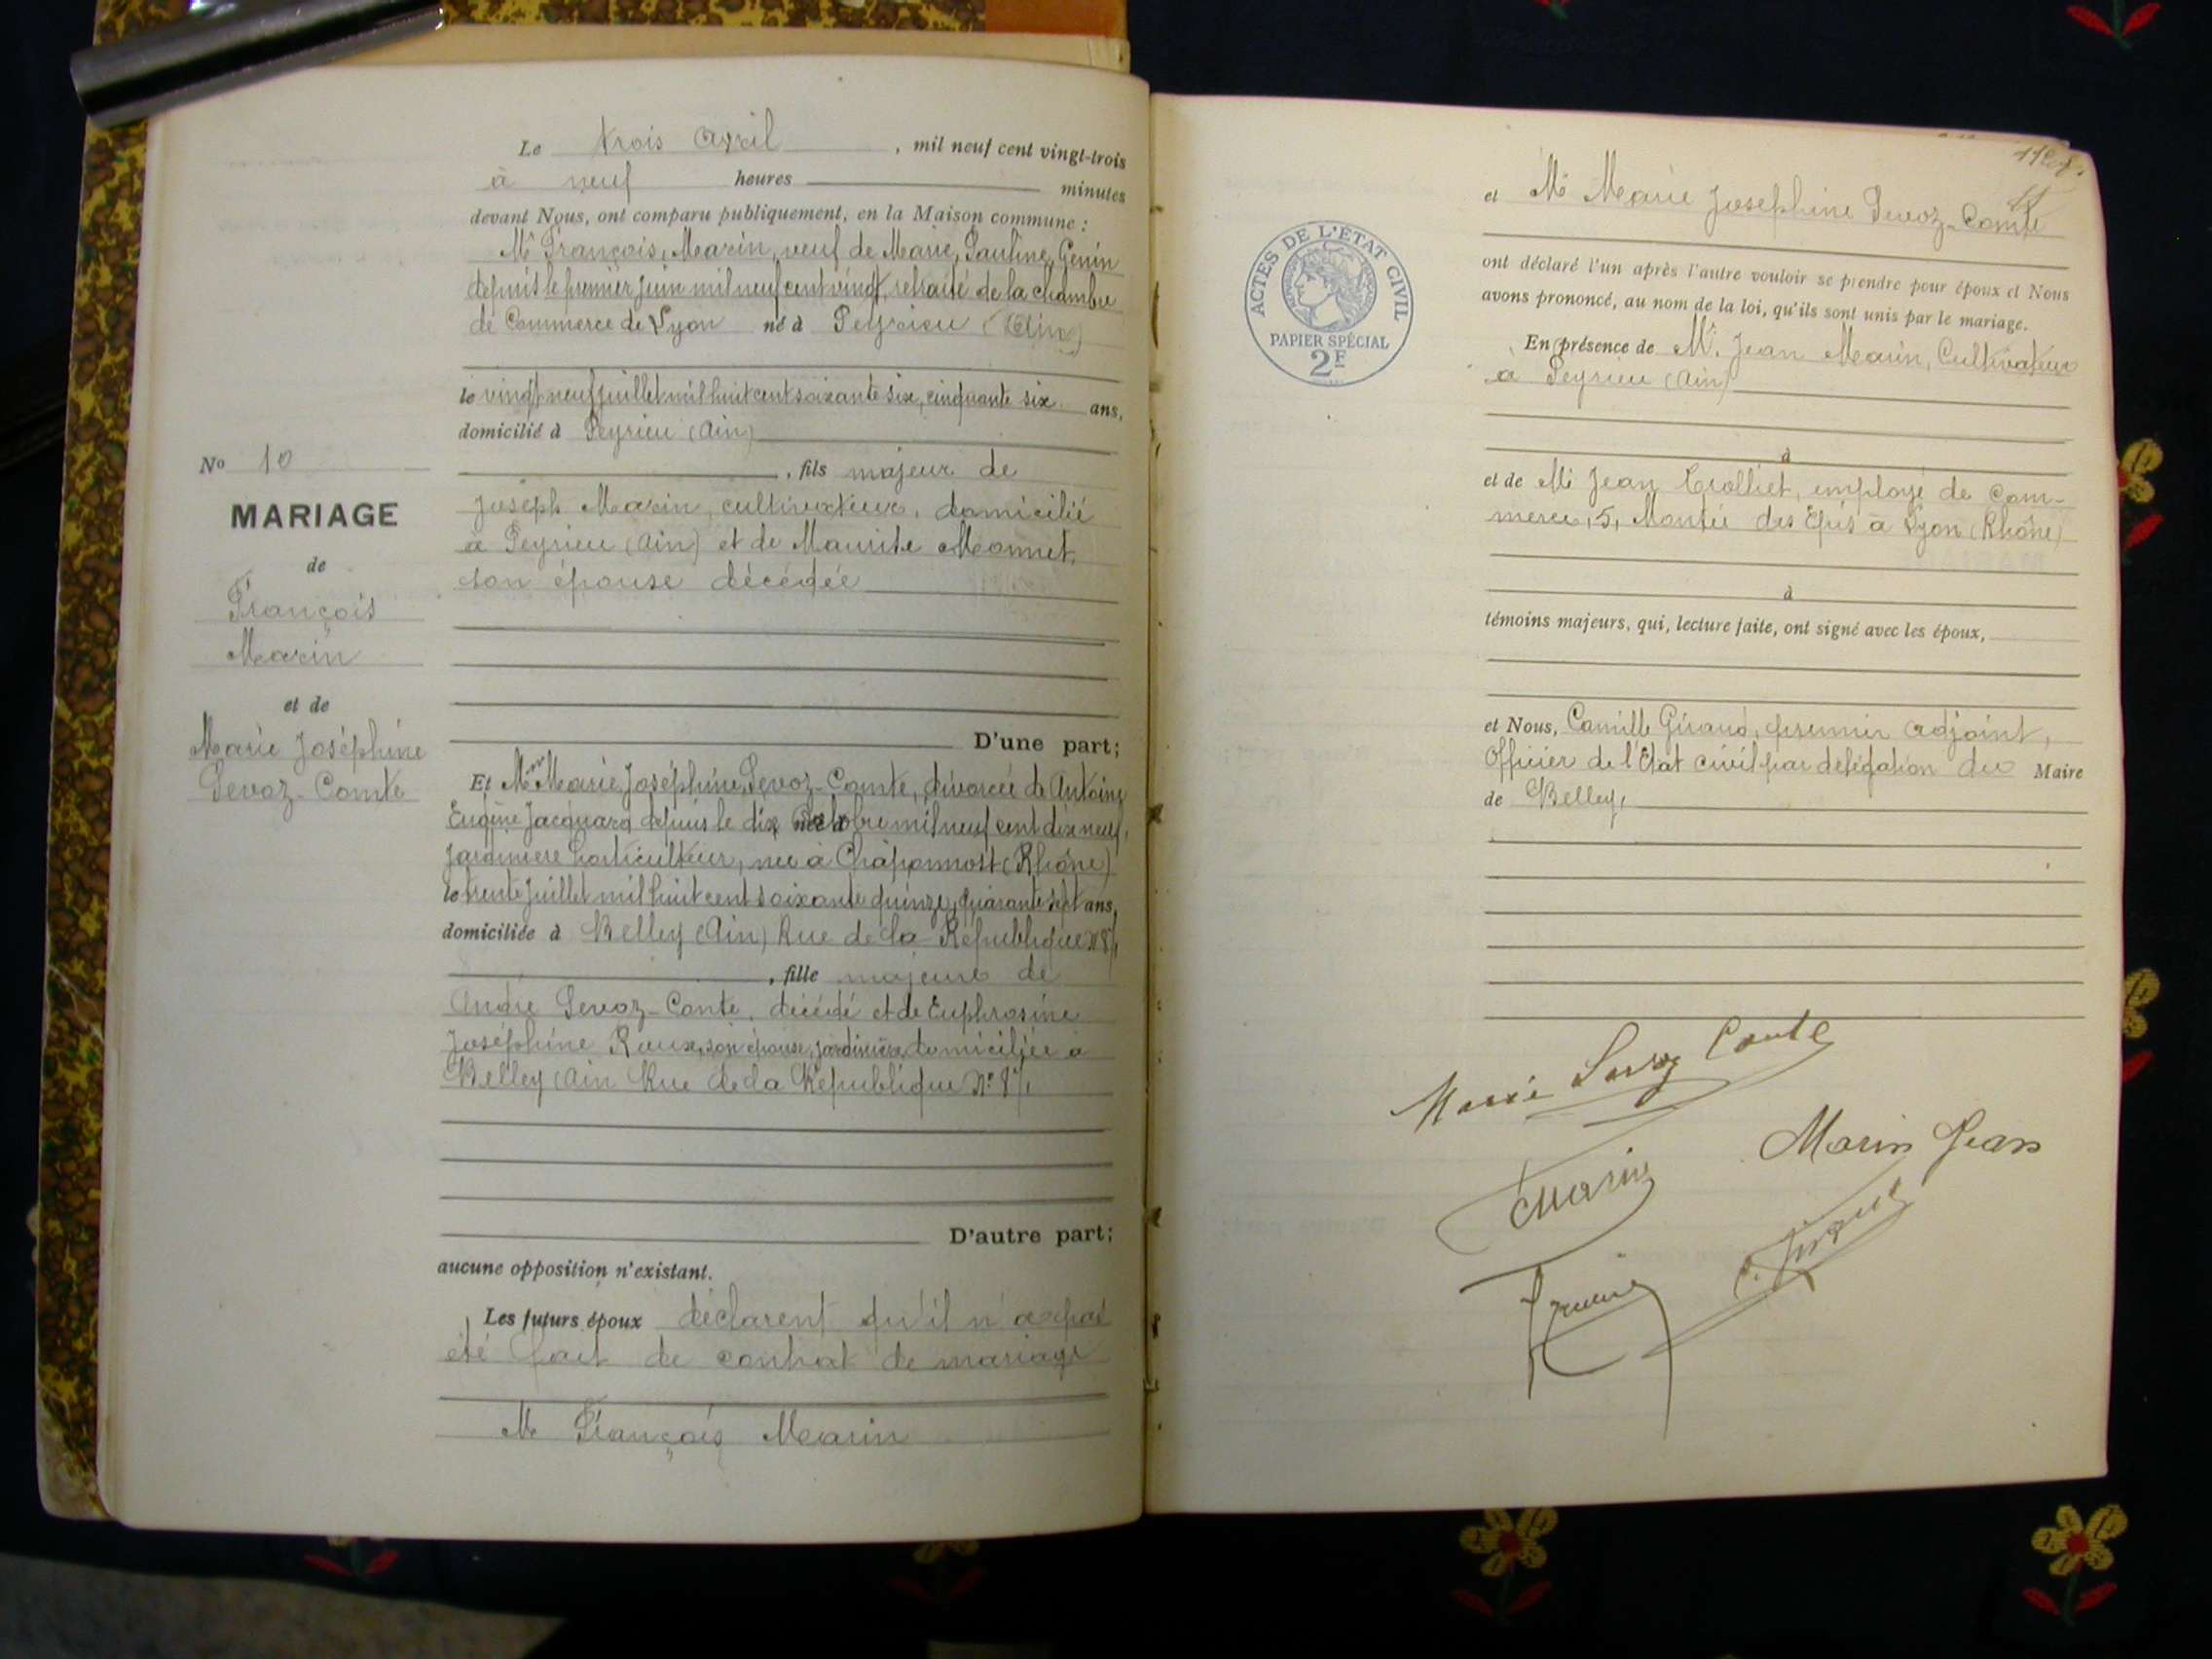 Le trois avril, mil neuf cent vingt-trois
à neuf heures minutes
devant Nous, ont comparu publiquement, en la Maison commune :
Mr François, Marin, veuf de Marie, Pauline, Genin
depuis le premier juin mil neuf cent vingt, retraité de la chambre
de Commerce de Lyon né à Peyrieu (Ain)
le vingt neuf juillet mil huit cent soixante six, cinquante six ans,
domicilié à Peyrieu (Ain)
, fils majeur de
Joseph Marin, cultivateur, domicilié
à Peyrieu (Ain) et de Maurite Monnet,
son épouse décédée
D'une part;
No 10
MARIAGE
de
François
Marin
et de
Marie Joséphine
Sevoz-Comte
Et Mme Marie, Joséphine, Sevoz-Comte, divorcée de Antoine
Eugène Jacquard depuis le dix née à octobre mil neuf cent dix neuf,
Jardinière horticulteur, née à Chaponnost (Rhône)
le trente juillet mil huit cent soixante quinze, quarante sept ans,
domiciliée à Belley (Ain) Rue de la République
, fille majeure de
André Sevoz-Conte, décédé et de Euphrosine
Joséphine Roux, son épouse, jardinière, domiciliée à
Belley (Ain Rue de la République
D'autre part;
aucune opposition n'existant.
Les futurs époux déclarent qu'il n'a pas
été fait de contrat de mariage
M François Marin
11
et Me Marie Joséphine Sevoz-Comte
ont déclaré l'un après l'autre vouloir se prendre pour époux et Nous
avons prononcé, au nom de la loi, qu'ils sont unis par le mariage.
ACTES DE L'ÉTAT CIVIL
PAPIER SPÉCIAL
2F
En présence de Mr. Jean Marin, Cultivateur
à Peyrieu (Ain)
à
et de Mr Jean Trolliet, employé de com-
merce, 5, Montée des Epis à Lyon (Rhône)
à
témoins majeurs, qui, lecture faite, ont signé avec les époux,
et Nous, Camille Giraud, premier adjoint,
Officier de l'Etat civil par délégation du Maire
de Belley,
Marie Sevoz Comte
Marin Jean
Marin
C. Giraud